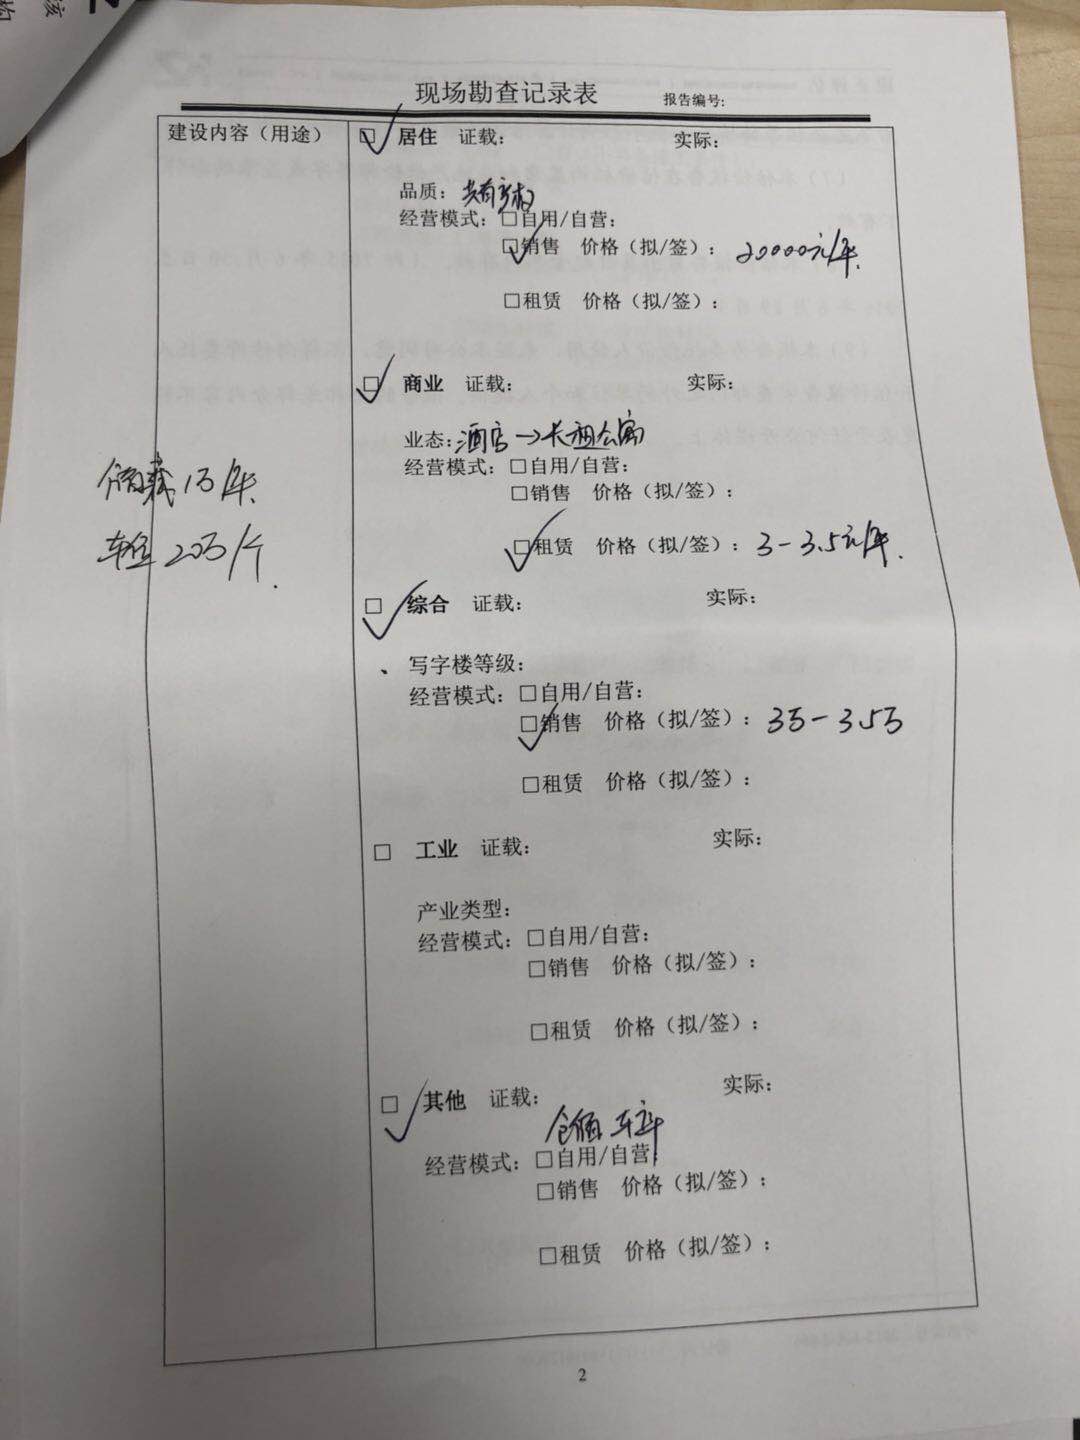 现场勘查记录表 报告编号:
建设内容（用途） □ 居住 证载： 实际：
品质：共有产权
经营模式：□自用/自营：
□销售 价格（拟/签）：20000元/㎡.
□租赁 价格（拟/签）：
□ 商业 证载： 实际：
业态：酒店→长租公寓
经营模式：□自用/自营：
□销售 价格（拟/签）：
储藏1万/㎡
□租赁 价格（拟/签）：3-3.5元/㎡.
车位20万/个.
□ 综合 证载： 实际：
、写字楼等级：
经营模式：□自用/自营：
□销售 价格（拟/签）：3万-3.5万
□租赁 价格（拟/签）：
□ 工业 证载： 实际：
产业类型：
经营模式：□自用/自营：
□销售 价格（拟/签）：
□租赁 价格（拟/签）：
□ 其他 证载： 实际：
仓储 车库
经营模式：□自用/自营
□销售 价格（拟/签）：
□租赁 价格（拟/签）：
2